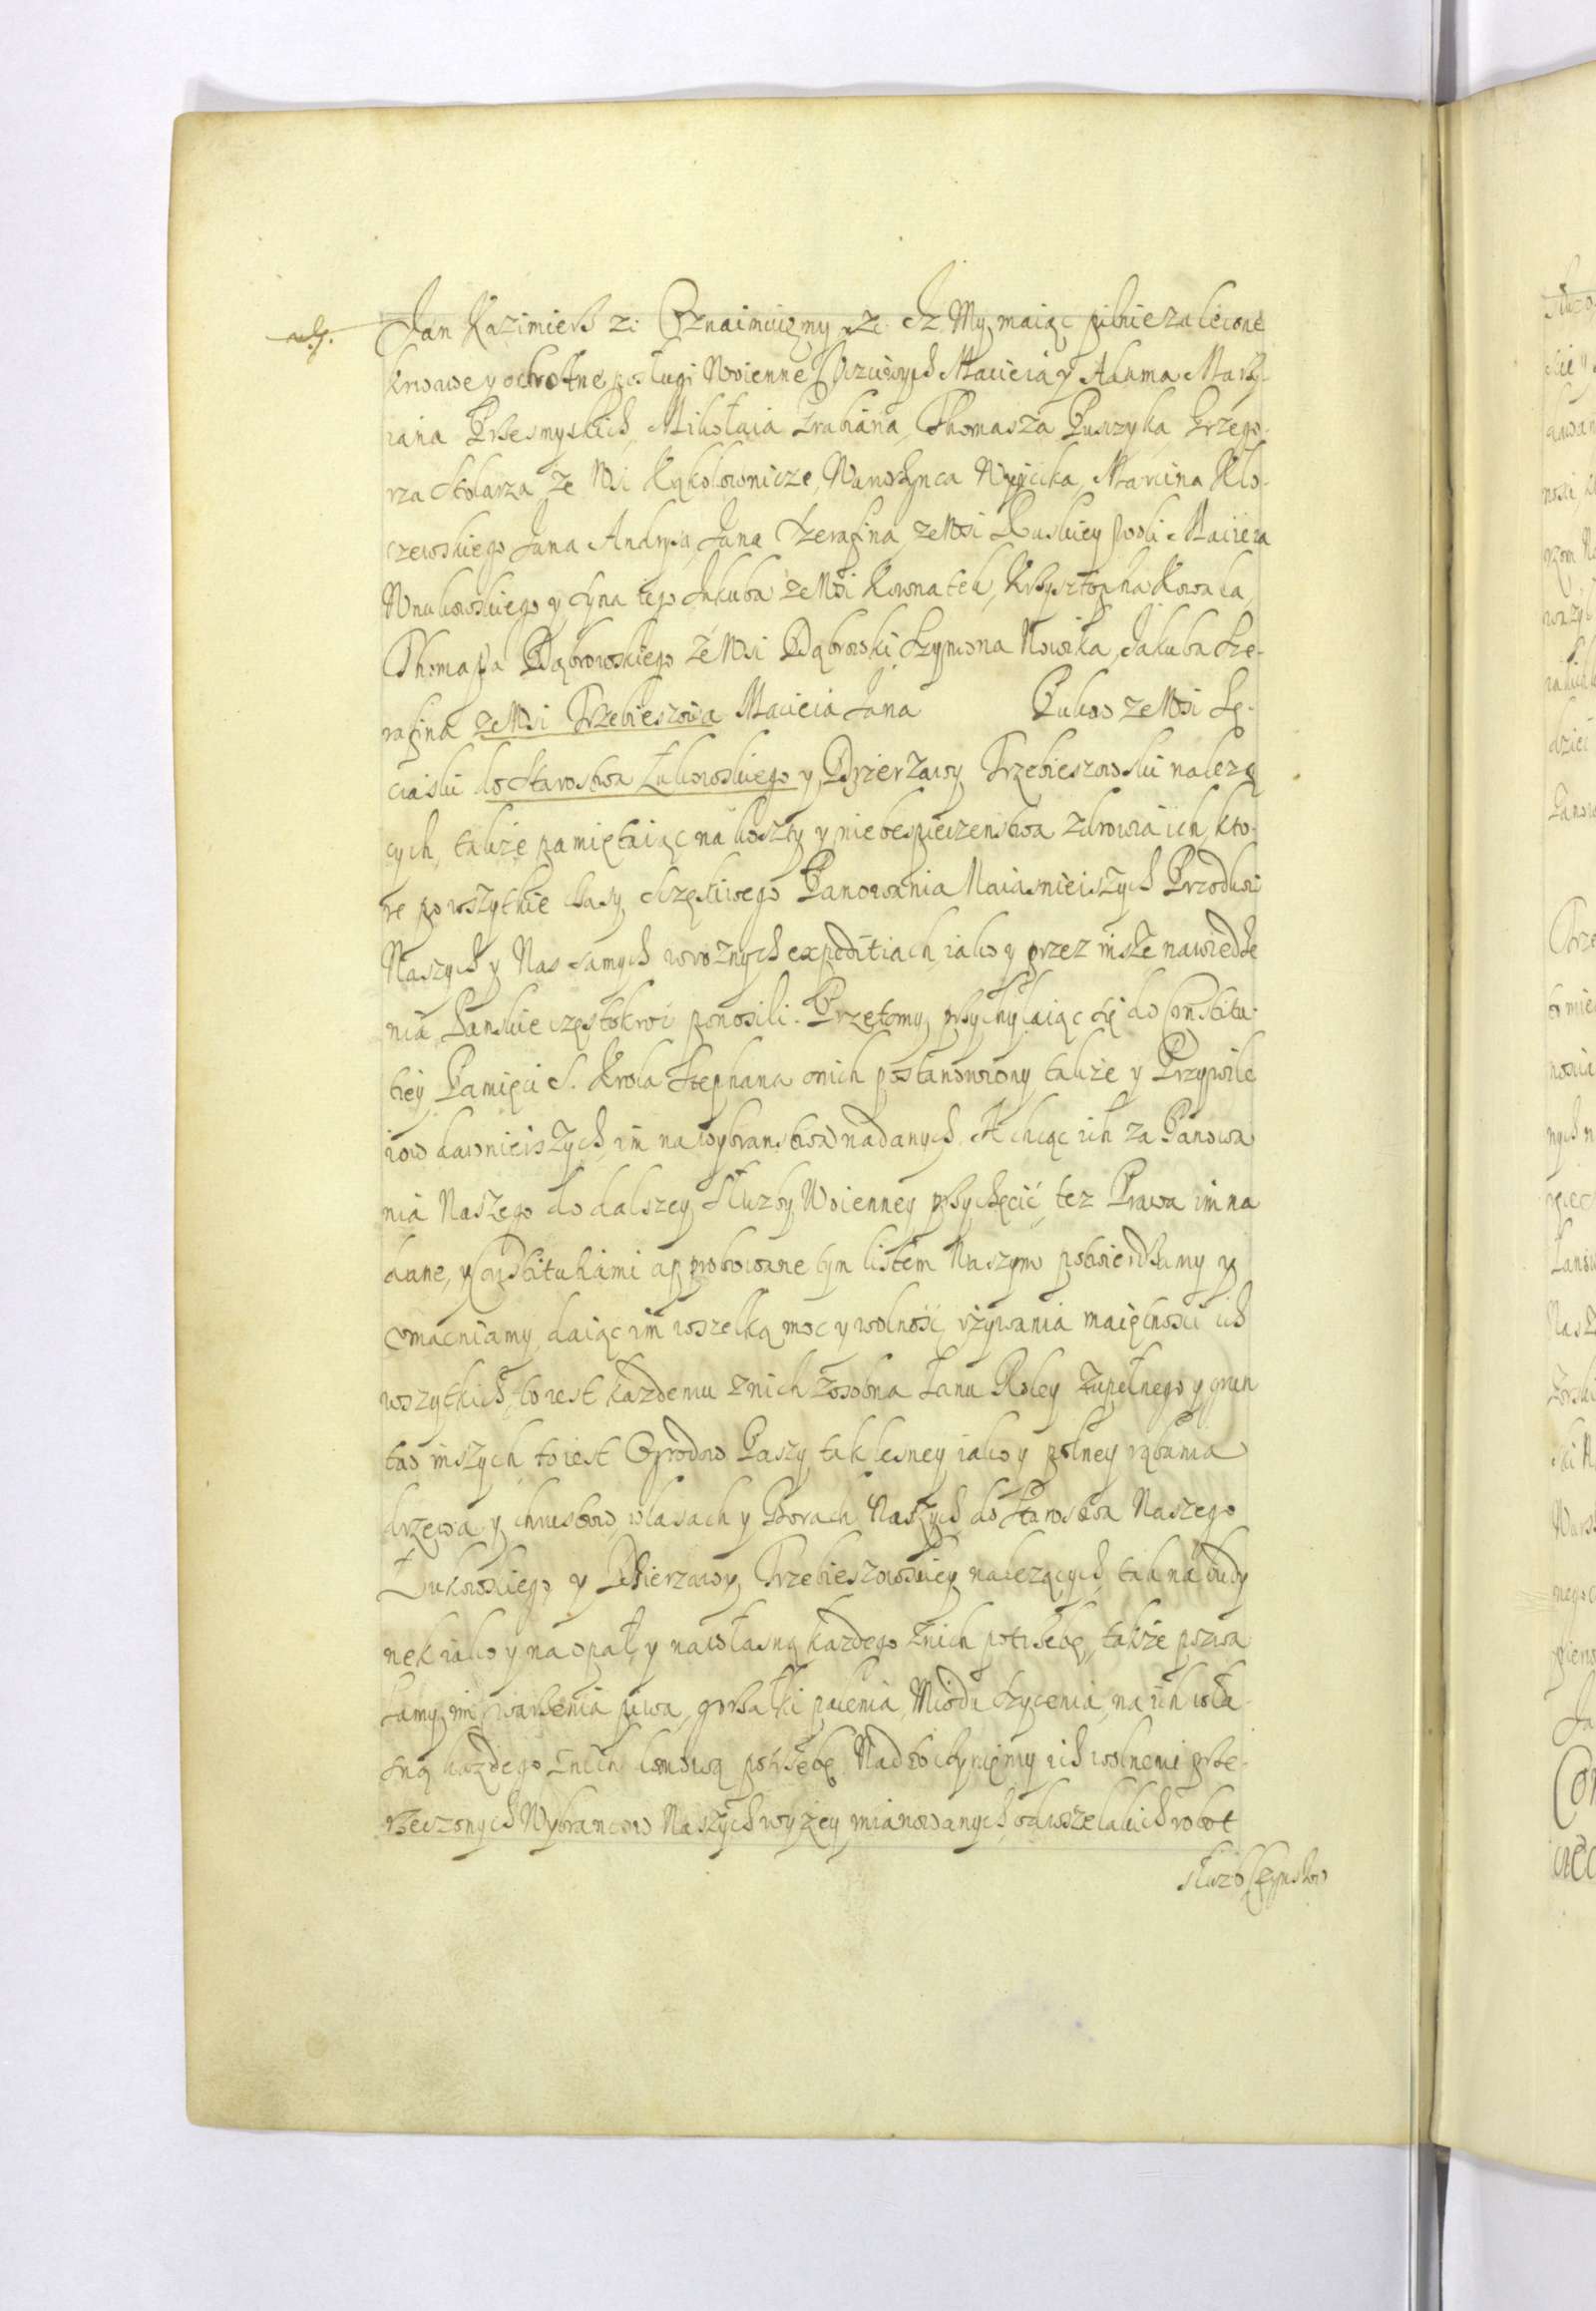 Jan Kazimierz zc. Oznaimuiemy zc. Iz My maiąc pilnie zalecone
krwawe y ochotne posługi Woienne Uczciwych Macieia y Adama Marcy-
iana Przesmyskich, Mikołaia Grabiana, Thomasza Puszyka Grzego-
rza Stolarza ze Wsi Kąkolownicze, Wawrzynca Woycika, Marcina Klo-
czewskiego Jana Andrysa, Jana Szerafina, ze Wsi Ruskiey Woli Macieia
Wnukowskiego y Syna iego Jakuba ze Wsi Kownatek, Krzysztopha Kowala,
Thomasza Dąbrowskiego ze Wsi Dąbrowski Szymona Nowika, Jakuba Sze-
rafina ze Wsi Trzebieszowa Macieia Jana Lukow ze Wsi Sę-
ciaski do Starostwa Łukowskiego y Dzierzawy Trzebieszowski nalezą
cych, takze pamiętaiąc na koszty y niebespieczenstwa zdrowia ich, kto-
re po wszytkie czasy szczęśliwego Panowania Naiasnieiszych Przodkow
Naszych y Nas samych w roznych expeditiach, iako y przez insze nawiedze
nia Panskie częstokroć ponosili. Przeto my przychylaiąc się do Constitu-
tiey Pamięci S. Krola Stephana o nich postanowiony takze y Przywile
iow dawnieiszych im na wybranstwa nadanych. A chcąc ich za Panowa
nia Naszego do dalszey Służby Woienney przychęcić, tez Prawa im na
dane, y Constitutiami approbowane tym listem Naszym potwierdzamy y
umacniamy, daiąc im wszelką moc y wolność, vzywania maiętnosci ich
wszytkich, to iest kazdemu z nich zosobna Łanu Roley zupełnego y grun
tow inszych to iest Ogrodow Paszy, tak lesney iako y polney rąbania
drzewa y chrustow, w lasach y Borach Naszych do Starostwa Naszego
Łukowskiego y Dzierzawy Trzebieszowskiey nalezących, tak na budy
nek iako y na opał, y na własną kazdego z nich potrzebę, takze pozwa
lamy im warzenia piwa, gorzałki palenia, Miodu sycenia, na ich wła-
sną kazdego z nich domową potrzebę. Nad to czyniemy ich wolnemi prze-
rzeczonych Wybrancow Naszych wyzey mianowanych, od wszelakich robot
Służb Czynszow